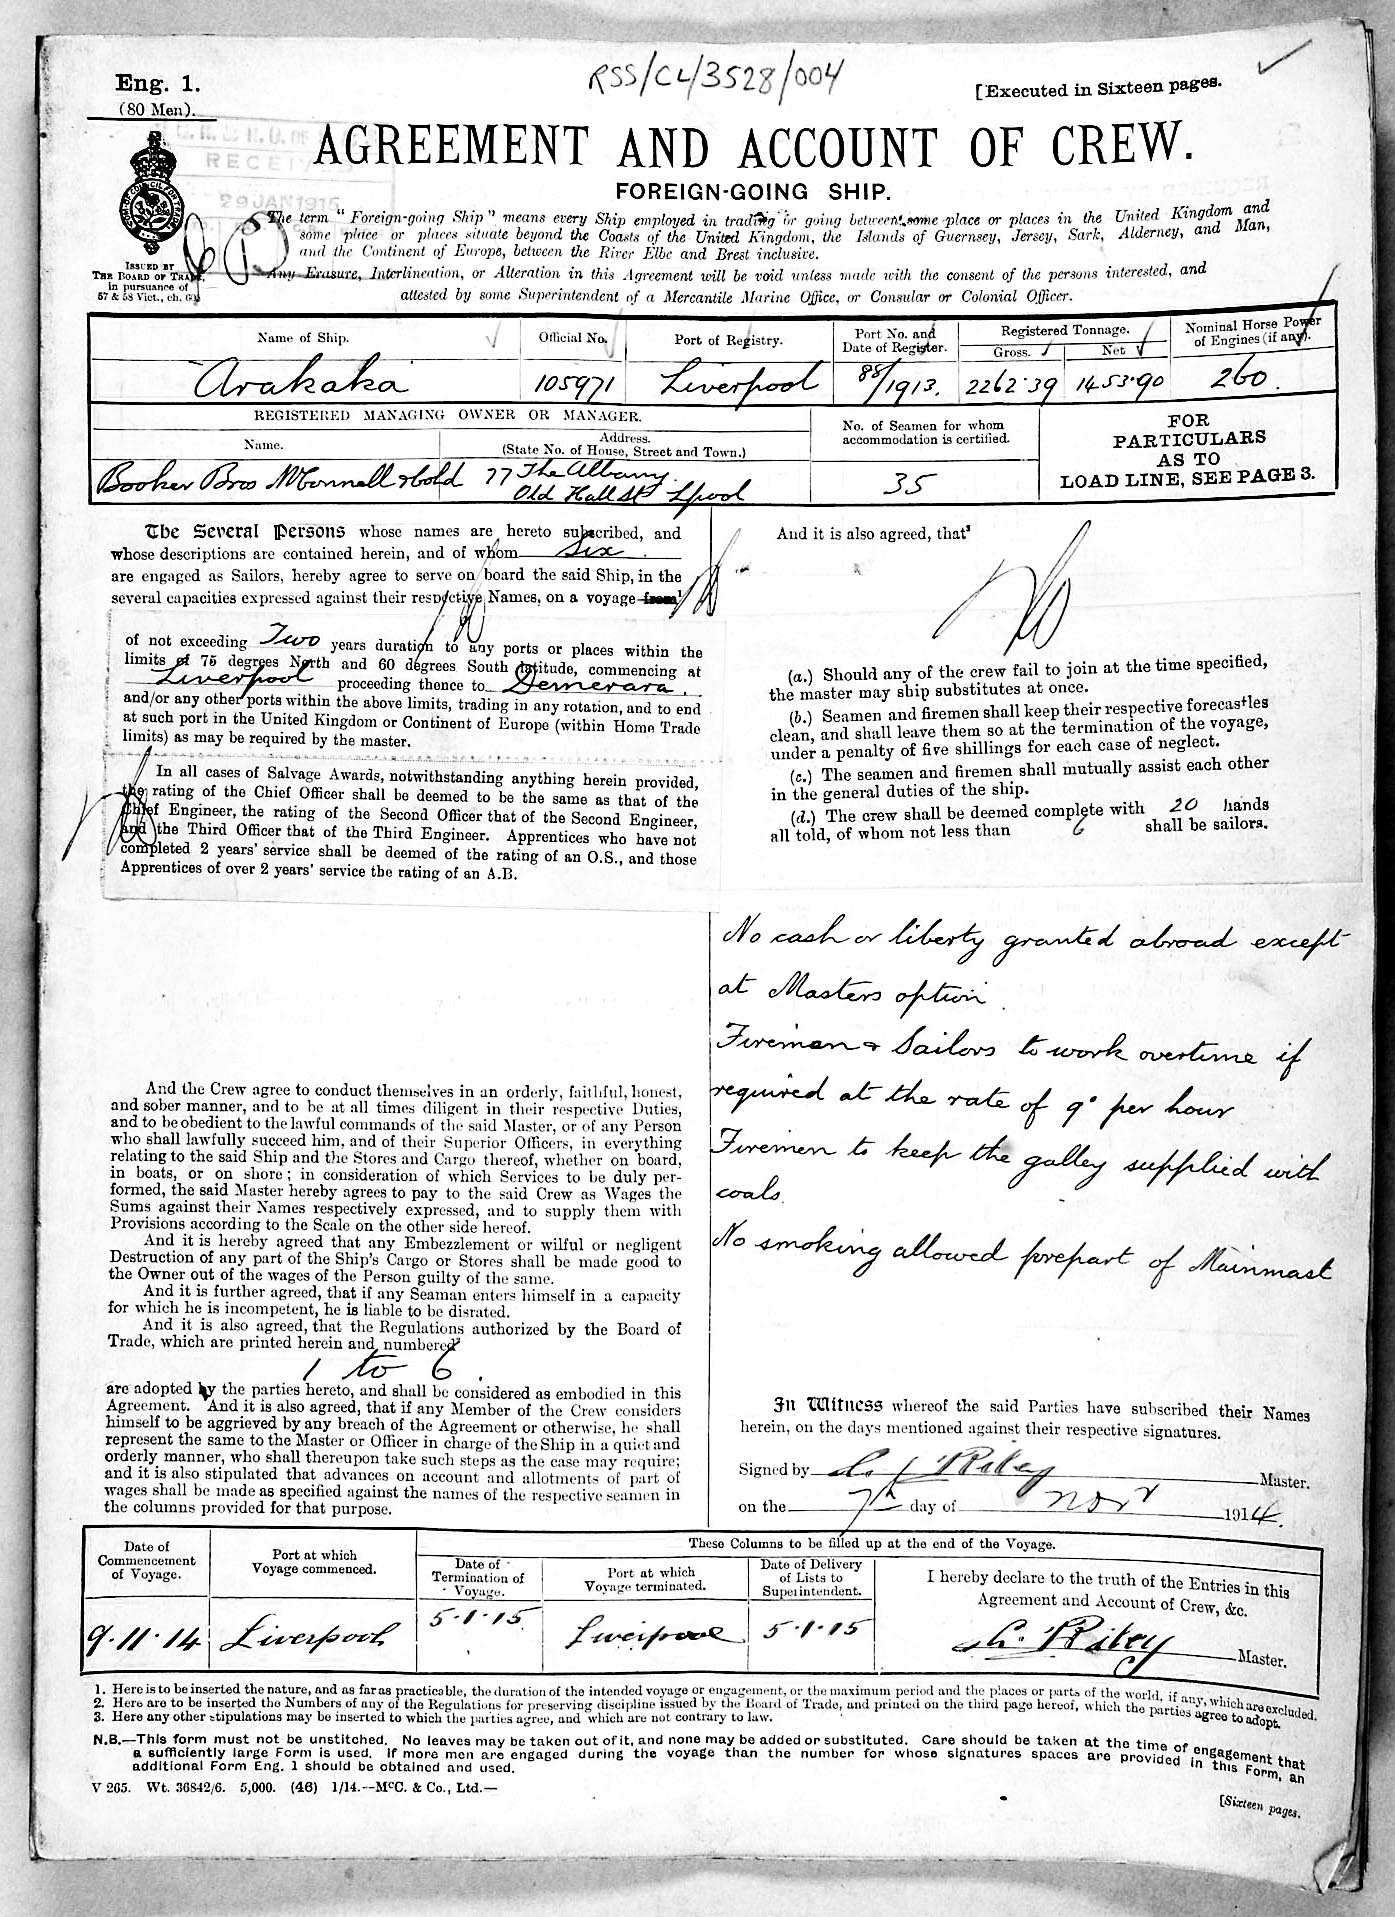 RSS/CL/3528/004
Eng. 1.
(80 Men).
[Executed in Sixteen pages.
RECEIVED
29 JAN 1915
AGREEMENT AND ACCOUNT OF CREW.
FOREIGN-GOING SHIP.
ISSUED BY
THE BOARD OF TRADE,
in pursuance of
57 & 58 Vict., ch. 60.
The term "Foreign-going Ship" means every Ship employed in trading or going between some place or places in the United Kingdom and
some place or places situate beyond the Coasts of the United Kingdom, the Islands of Guernsey, Jersey, Sark, Alderney, and Man,
and the Continent of Europe, between the River Elbe and Brest inclusive.
Any Erasure, Interlineation, or Alteration in this Agreement will be void unless made with the consent of the persons interested, and
attested by some Superintendent of a Mercantile Marine Office, or Consular or Colonial Officer.
Name of Ship.
Official No.
Port of Registry.
Port No. and
Date of Register.
Registered Tonnage.
Gross.
Net
Nominal Horse Power
of Engines (if any).
Arakaka
105971
Liverpool
88/1913.
2262.39
1453.90
260.
REGISTERED MANAGING OWNER OR MANAGER.
Name.
Address.
(State No. of House, Street and Town.)
No. of Seamen for whom
accommodation is certified.
FOR
PARTICULARS
AS TO
LOAD LINE, SEE PAGE 3.
Booker Bros McConnell & Cold
77 The Albany
Old Hall St Lpool
35
The Several Persons whose names are hereto subscribed, and
whose descriptions are contained herein, and of whom Six
are engaged as Sailors, hereby agree to serve on board the said Ship, in the
several capacities expressed against their respective Names, on a voyage from¹
of not exceeding Two years duration to any ports or places within the
limits of 75 degrees North and 60 degrees South latitude, commencing at
Liverpool proceeding thence to Demerara.
and/or any other ports within the above limits, trading in any rotation, and to end
at such port in the United Kingdom or Continent of Europe (within Home Trade
limits) as may be required by the master.
In all cases of Salvage Awards, notwithstanding anything herein provided,
the rating of the Chief Officer shall be deemed to be the same as that of the
Chief Engineer, the rating of the Second Officer that of the Second Engineer,
and the Third Officer that of the Third Engineer. Apprentices who have not
completed 2 years' service shall be deemed of the rating of an O.S., and those
Apprentices of over 2 years' service the rating of an A.B.
And the Crew agree to conduct themselves in an orderly, faithful, honest,
and sober manner, and to be at all times diligent in their respective Duties,
and to be obedient to the lawful commands of the said Master, or of any Person
who shall lawfully succeed him, and of their Superior Officers, in everything
relating to the said Ship and the Stores and Cargo thereof, whether on board,
in boats, or on shore; in consideration of which Services to be duly per-
formed, the said Master hereby agrees to pay to the said Crew as Wages the
Sums against their Names respectively expressed, and to supply them with
Provisions according to the Scale on the other side hereof.
And it is hereby agreed that any Embezzlement or wilful or negligent
Destruction of any part of the Ship's Cargo or Stores shall be made good to
the Owner out of the wages of the Person guilty of the same.
And it is further agreed, that if any Seaman enters himself in a capacity
for which he is incompetent, he is liable to be disrated.
And it is also agreed, that the Regulations authorized by the Board of
Trade, which are printed herein and numbered²
1 to 6.
are adopted by the parties hereto, and shall be considered as embodied in this
Agreement. And it is also agreed, that if any Member of the Crew considers
himself to be aggrieved by any breach of the Agreement or otherwise, he shall
represent the same to the Master or Officer in charge of the Ship in a quiet and
orderly manner, who shall thereupon take such steps as the case may require;
and it is also stipulated that advances on account and allotments of part of
wages shall be made as specified against the names of the respective seamen in
the columns provided for that purpose.
And it is also agreed, that³
(a.) Should any of the crew fail to join at the time specified,
the master may ship substitutes at once.
(b.) Seamen and firemen shall keep their respective forecastles
clean, and shall leave them so at the termination of the voyage,
under a penalty of five shillings for each case of neglect.
(c.) The seamen and firemen shall mutually assist each other
in the general duties of the ship.
(d.) The crew shall be deemed complete with 20 hands
all told, of whom not less than 6 shall be sailors.
No cash or liberty granted abroad except
at Masters option.
Firemen & Sailors to work overtime if
required at the rate of 9d per hour
Firemen to keep the galley supplied with
coals.
No smoking allowed forepart of Mainmast
In Witness whereof the said Parties have subscribed their Names
herein, on the days mentioned against their respective signatures.
Signed by Riley Master.
on the 7th day of Novr 1914.
Date of
Commencement
of Voyage.
Port at which
Voyage commenced.
These Columns to be filled up at the end of the Voyage.
Date of
Termination of
Voyage.
Port at which
Voyage terminated.
Date of Delivery
of Lists to
Superintendent.
I hereby declare to the truth of the Entries in this
Agreement and Account of Crew, &c.
9.11.14
Liverpool
5.1.15
Liverpool
5.1.15
Riley Master.
1. Here is to be inserted the nature, and as far as practicable, the duration of the intended voyage or engagement, or the maximum period and the places or parts of the world, if any, which are excluded.
2. Here are to be inserted the Numbers of any of the Regulations for preserving discipline issued by the Board of Trade, and printed on the third page hereof, which the parties agree to adopt.
3. Here any other stipulations may be inserted to which the parties agree, and which are not contrary to law.
N.B.—This form must not be unstitched. No leaves may be taken out of it, and none may be added or substituted. Care should be taken at the time of engagement that
a sufficiently large Form is used. If more men are engaged during the voyage than the number for whose signatures spaces are provided in this Form, an
additional Form Eng. 1 should be obtained and used.
V 265. Wt. 36842/6. 5,000. (46) 1/14.—McC. & Co., Ltd.—
[Sixteen pages.